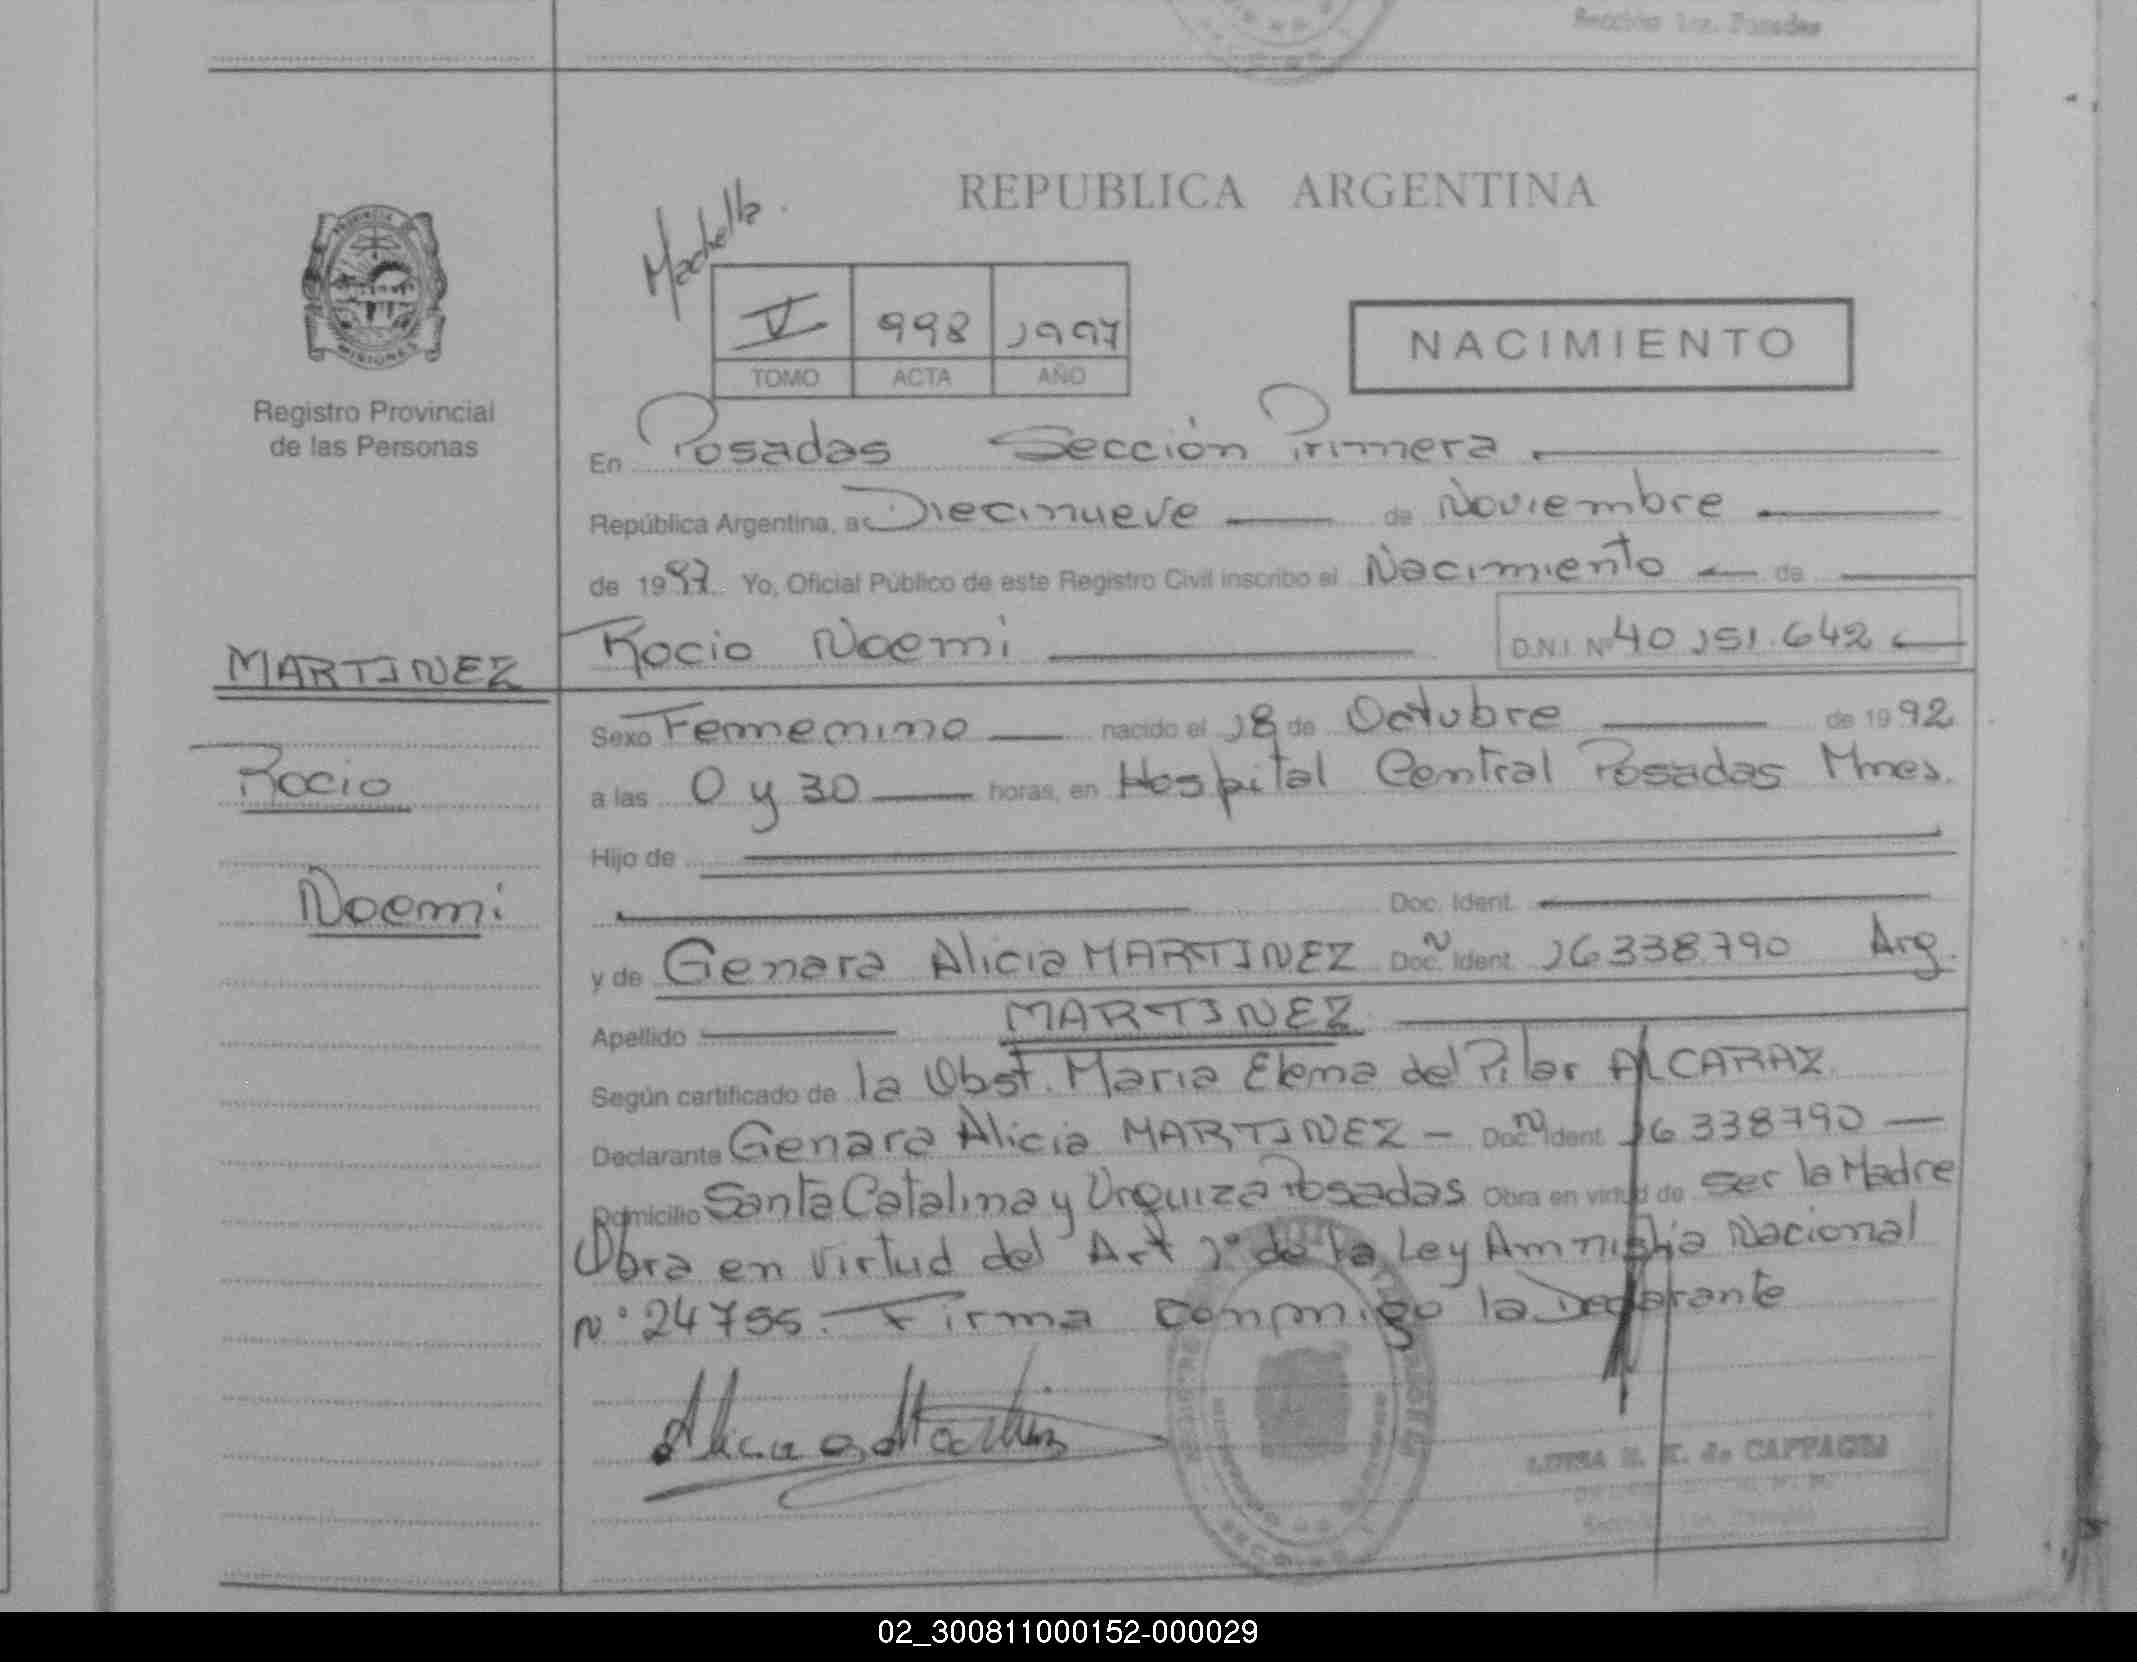 Sección 1ra. Posadas
REPUBLICA ARGENTINA
V 998 1997
TOMO ACTA AÑO
NACIMIENTO
PROVINCIA
MISIONES
Registro Provincial
de las Personas
En Posadas Sección Primera
República Argentina, a Diecinueve de Noviembre
de 1997 Yo, Oficial Público de este Registro Civil inscribo el Nacimiento de
MARTINEZ
Rocio Noemi D.N.I. Nº 40 151.642
Sexo Femenino nacido el 18 de Octubre de 1992
Rocio
a las 0 y 30 horas, en Hospital Central Posadas Mnes.
Hijo de
Noemi
Doc. Ident.
y de Genara Alicia MARTINEZ Doc. N Ident. 16338.790 Arg.
Apellido MARTINEZ
Según certificado de la Obst. Maria Elena del Pilar ALCARAZ
Declarante Genara Alicia MARTINEZ - Doc. N Ident. 16338790
Domicilio Santa Catalina y Urquiza Posadas Obra en virtud de ser la Madre
Obra en virtud del Art 1º de la Ley Amnistia Nacional
Nº 24755. Firma conmigo la Declarante
LUISA de
02_300811000152-000029